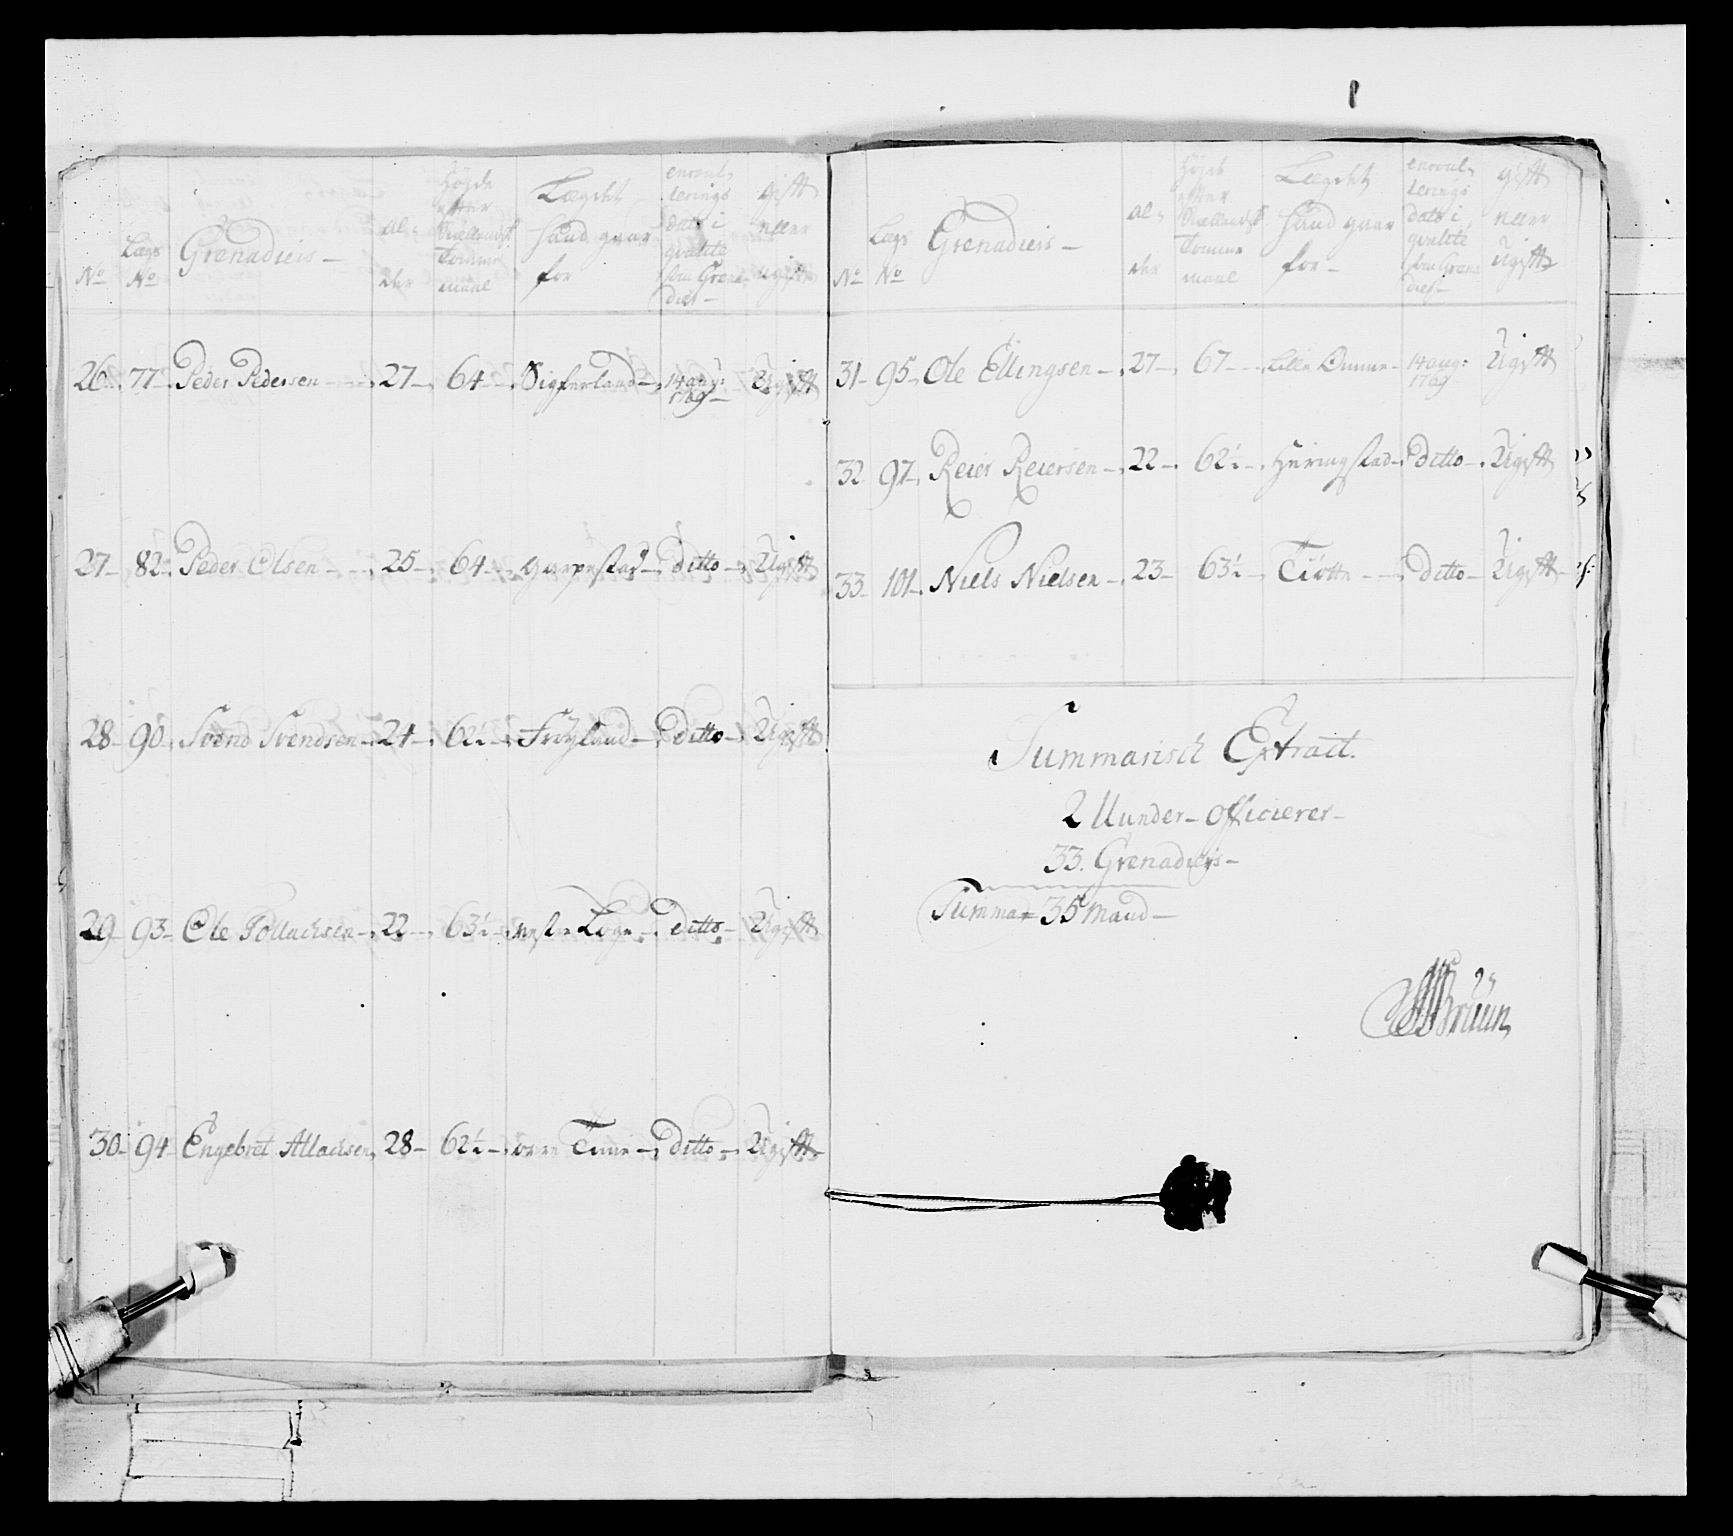 No Lægs No Grenadiers alder Høyde efter Siællandsk Tomme maal Lægdet hand gaar for enroullerings dato i qvalite som Grenadier gift eller ugift
26 77 Peder Pedersen 27 64 Sigferland 14 aug: 1769 Ugift
27 82 Peder Olsen 25 64 ditto Ugift
28 90 Svend Svendsen 24 62½ Frøyland ditto Ugift
29 93 Ole Tollachsen 22 63½ ditto Ugift
30 94 Engebret Atlachsen 28 62½ ditto Ugift
No Lægs No Grenadiers alder Høyde efter Siællandsk Tomme maal Lægdet hand gaar for enroullerings dato i qvalite som Grenadier gift eller Ugift
31 95 Ole Ellingsen 27 67 14 aug: 1769 Ugift
32 97 Reier Reiersen 22 62½ Heringstad ditto Ugift
33 101 Niels Nielsen 23 63½ Tiøtte ditto Ugift
Summarisch Extract.
2 Uunder-officierer
33. Grenadiers
Summa 35 Mand
Bruun